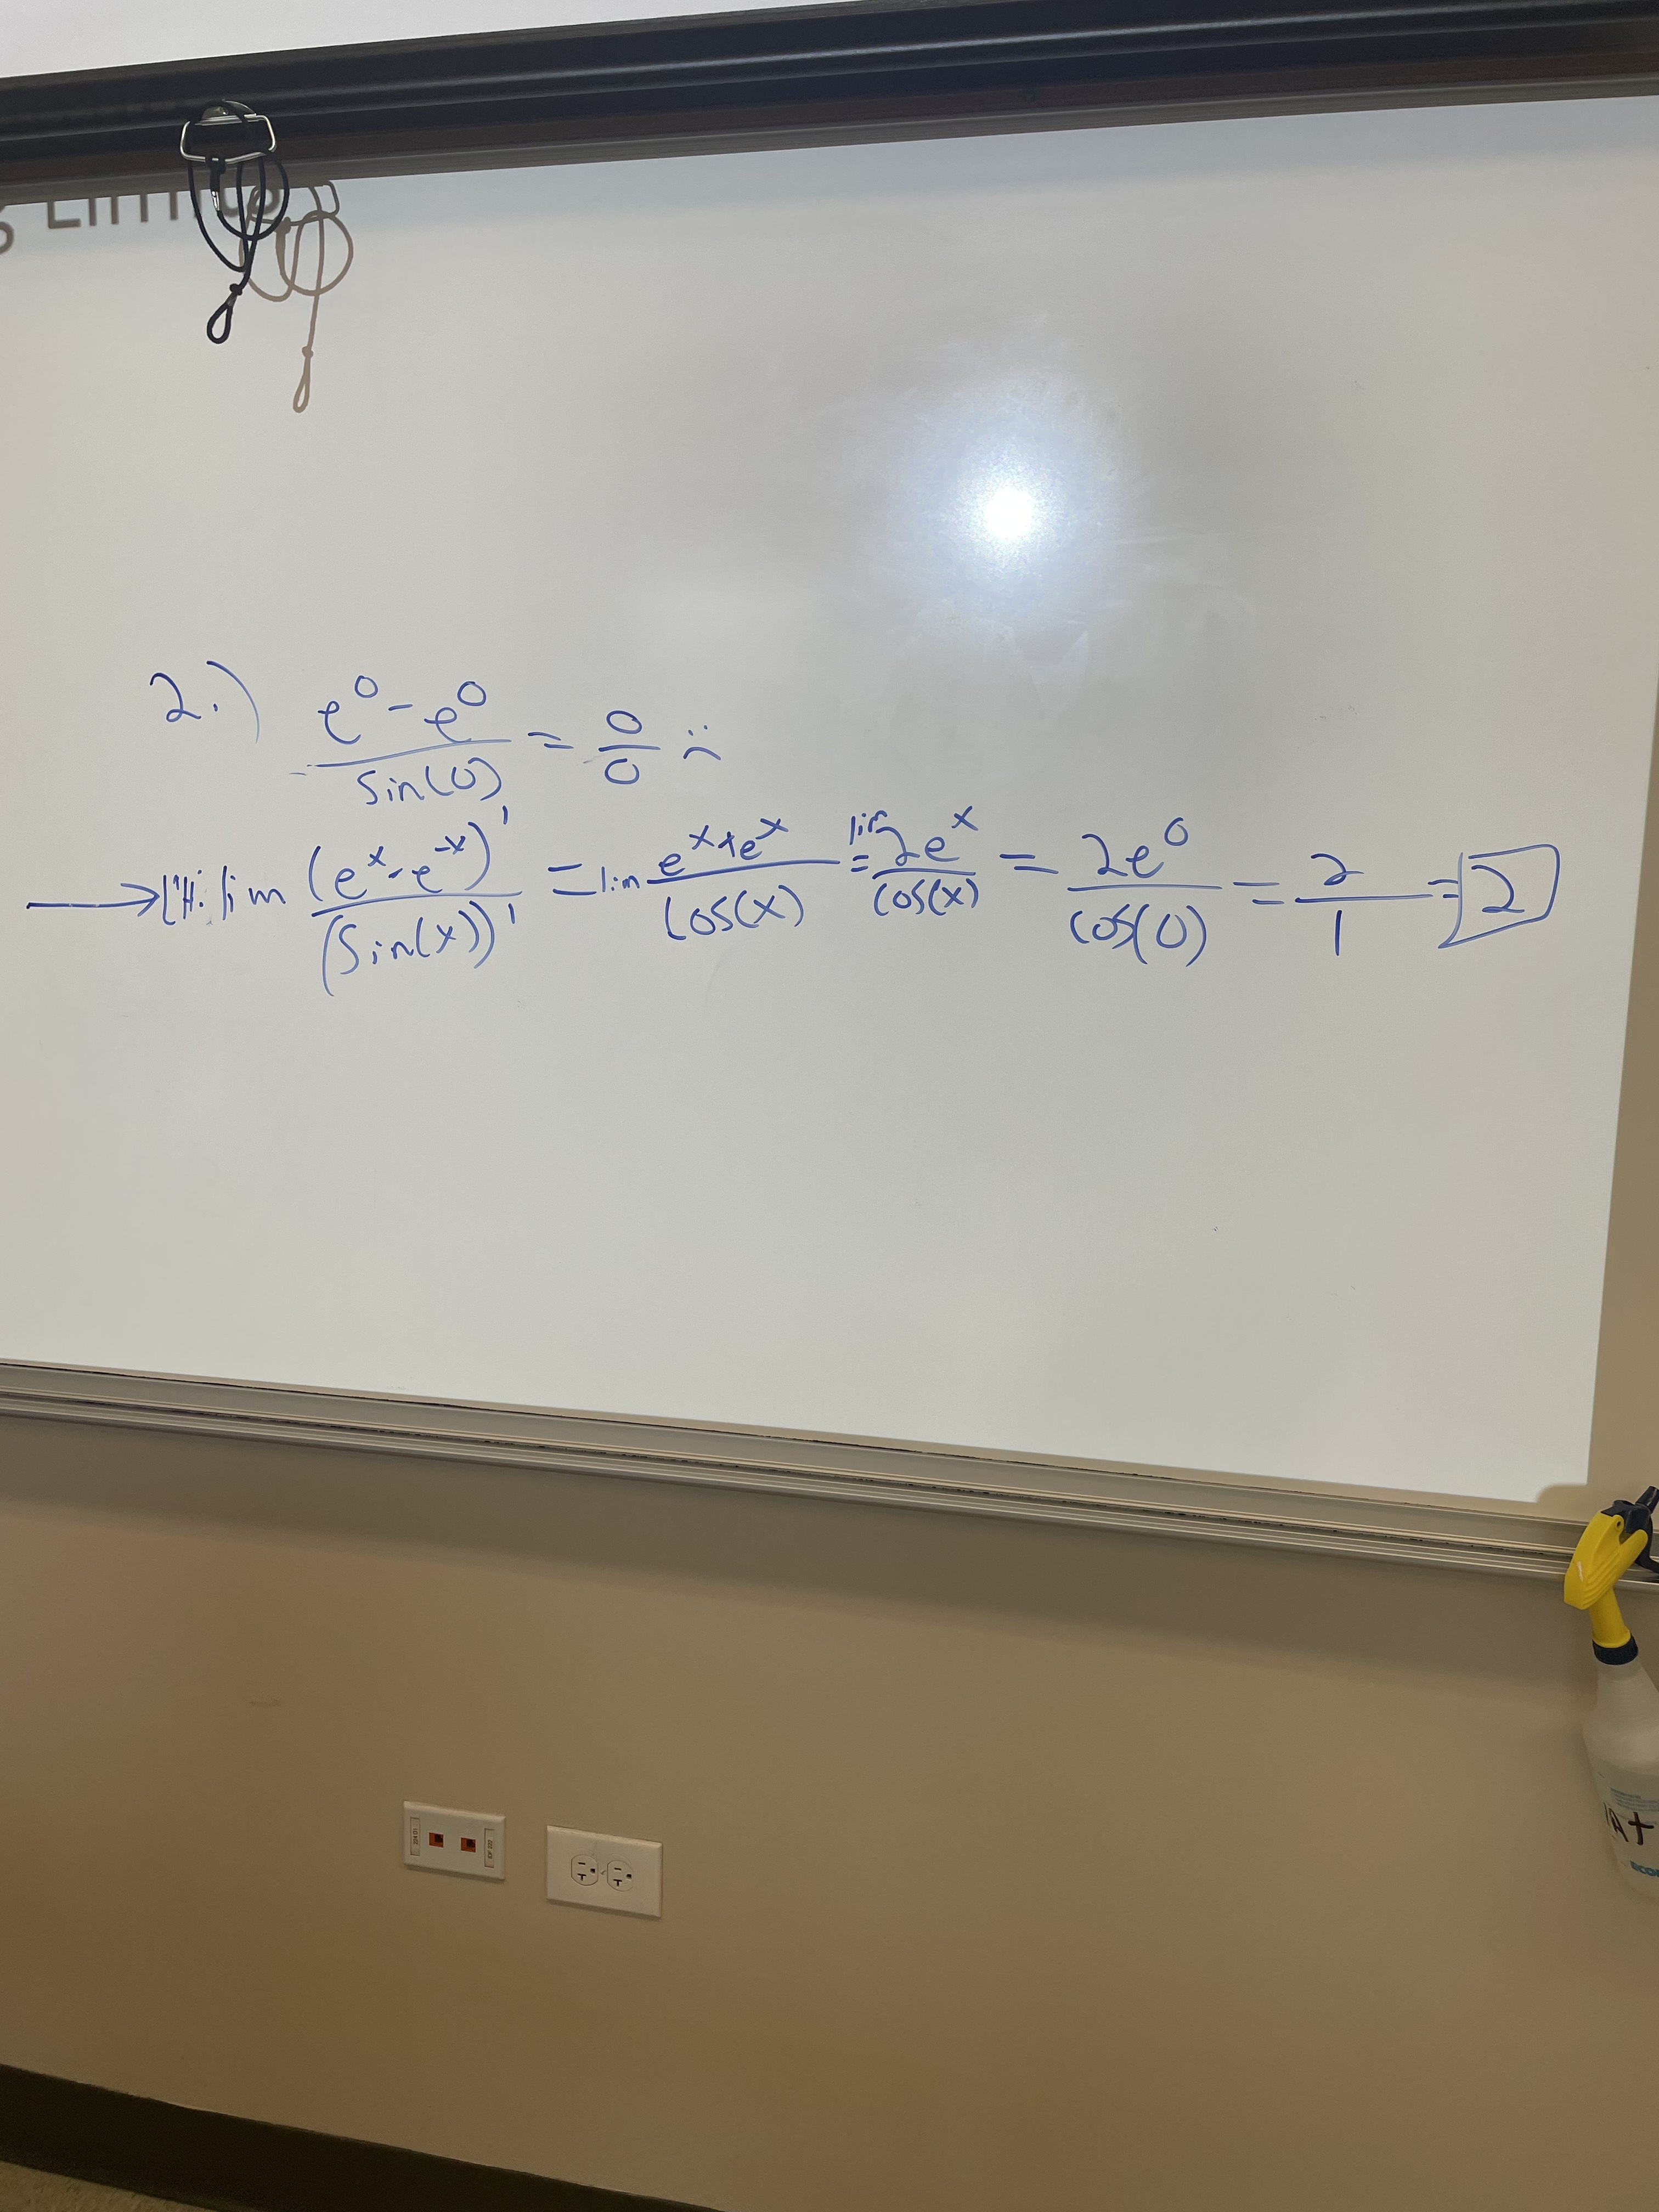 g Limits
2.) e^0 - e^0 / sin(0) = 0/0 :(
→ L'H: lim (e^x - e^-x)' / (sin(x))' = lim e^x + e^x / cos(x) = lim 2e^x / cos(x) = 2e^0 / cos(0) = 2/1 = 2